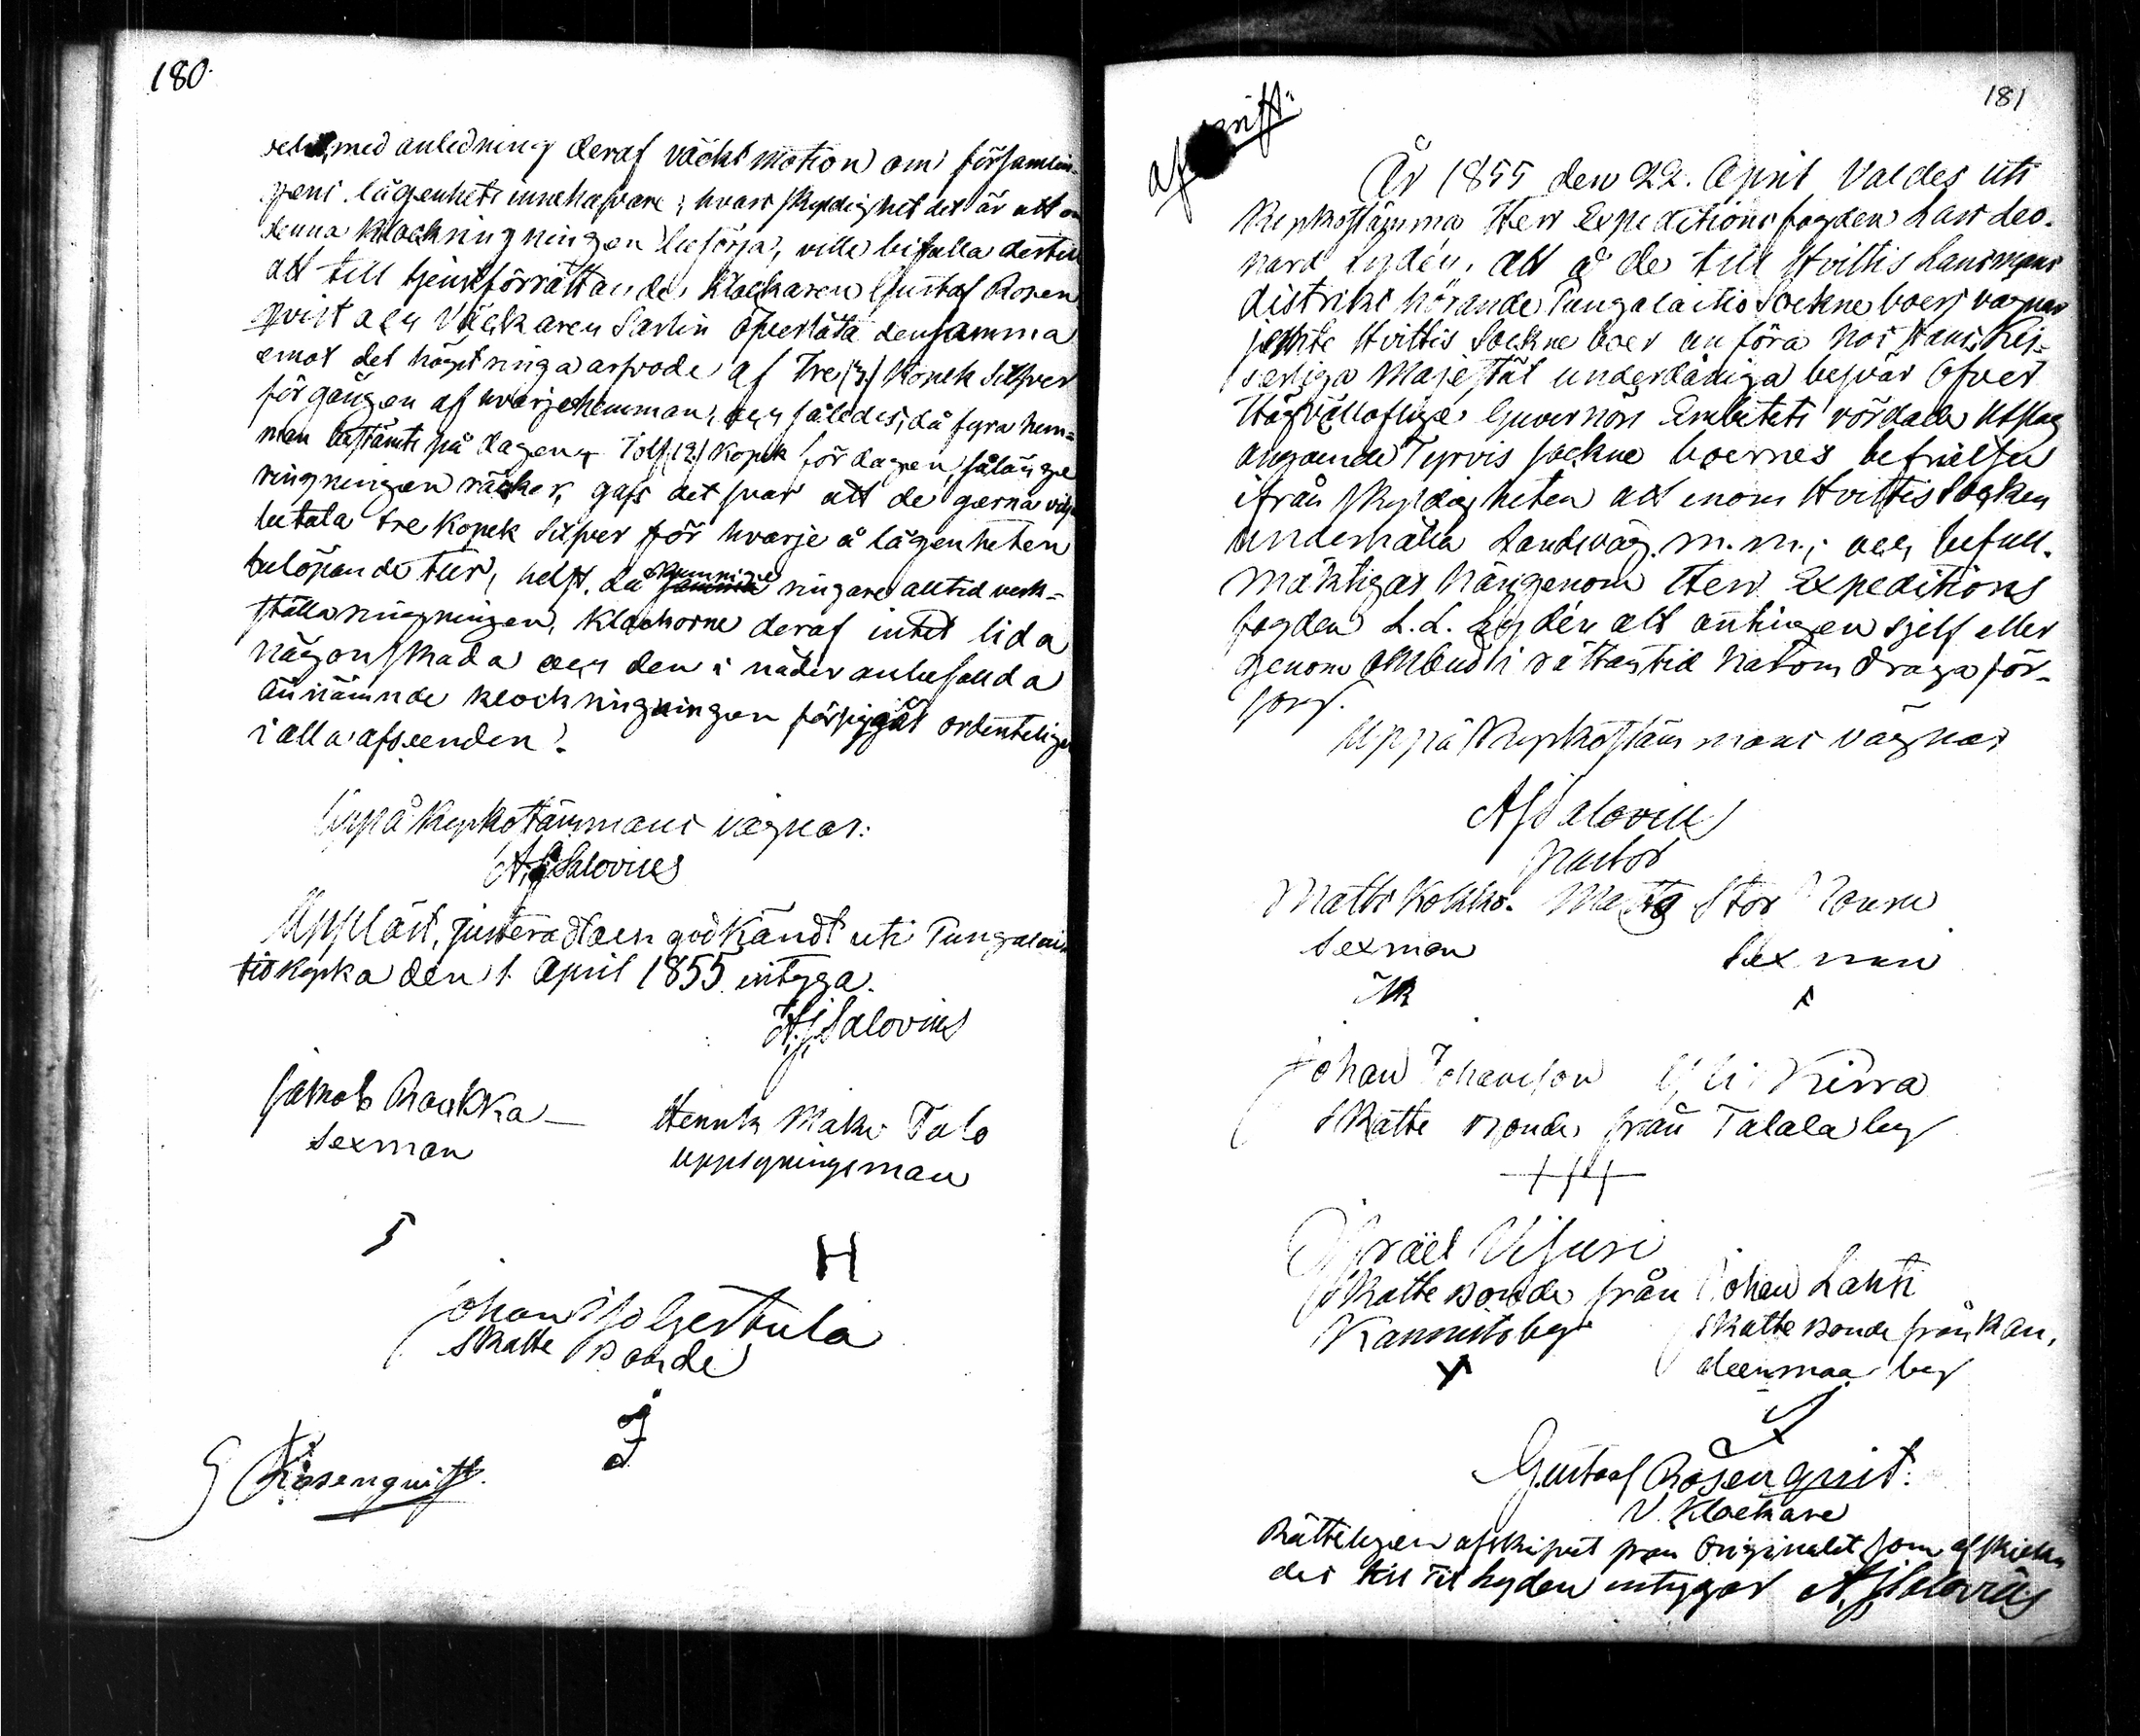 180.
med anledning deraf väckt motion om församlin-
gens lägenhets innehafvare, hvars skyldighet det är att om
denna klockringningen besörja, ville bifalla dertill
att till tjenstförrättande Klockaren Gustaf Rosen
qvist och Väckaren Sarlin öfverlåta densamma
emot det högst ringa arfvode af Tre (3) Kopek Silfver
för gången af hvarje hemman, och således, då fyra hem-
man bestämts på dagen, Tolf (12) Kopek för dagen, sålänge
ringningen räcker, gafs det svar att de gerna vilja
betala tre Kopek Silfver för hvarje å lägenheten
belöpande tur, helst då kunnige ringare alltid verk-
ställa ringningen, klockorne deraf intet lida
någon skada och den i nåder anbefallda
ännämnde klockringningen försiggår ordenteligen
i alla afseenden.
Uppå Kyrkostämmans vägnar:
A. J. Salovius
Uppläst, justeradt och godkändt uti Pungalai-
tio kyrka den 1. April 1855 intyga.
A. J. Salovius
Jakob Raukka Henrik Maki Talo
Sexman Uppsyningsman
H
Johan Iso Yertula
Skatte Bonde
J
G Rosenqvist.
181
Afskrift
År 1855 den 22. April Valdes uti
Kyrkostämma Herr Expeditions fogden Lars Leo-
nard Lydén, att å de till Hvittis Länsmans
distrikt hörande Pungalaitio Sockne boers vägnar
jemte Hvittis Sockne boer anföra hos Hans Kej-
serliga Majestät underdåniga besvär öfver
Högvällofliga Guvernörs Embetets vördade Utslag
angående Tyrvis sockne boernes befrielse
ifrån skyldigheten att inom Hvittis Socken
underhålla Landsväg m. m.; och befull-
mäktigas härigenom Herr Expeditions
fogden L. L. Lydén att antingen sjelf eller
genom ombud i rättan tid härom draga för-
sorg.
Uppå Kyrkostämmans vägnar
A J Salovius
pastor
Matts Kokko. Matts Stor Nouru
Sexman Sexman
Johan Johansson Yli Kirra
Skatte Bonde från Talala by
Israël Uhsuri
Skatte Bonde från Johan Lahti
Kannisto by Skatte Bonde från Kan-
deenmaa by
Gustaf Rosenqvist.
V. Klockare
Rätteligen afskrifvet från Originalet som afskicka-
des till Tit Lyden intygar A. J. Salovius